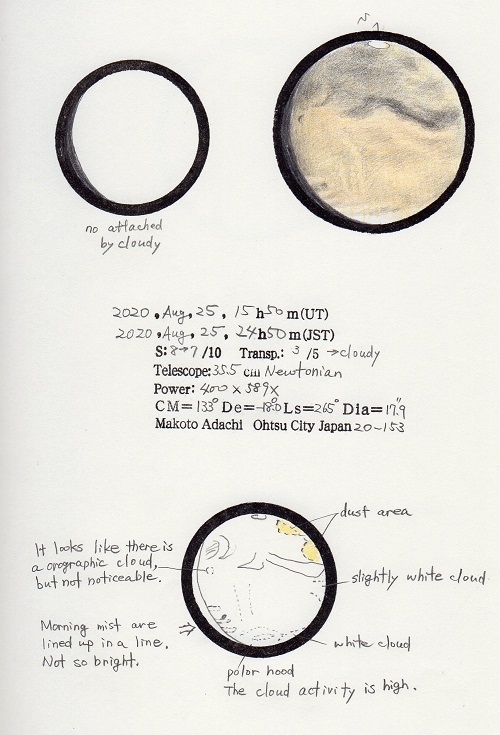 N
no attached
by cloudy
2020, Aug, 25, 15h50m(UT)
2020, Aug, 25, 24h50m(JST)
S: 8→7/10 Transp.: 3/5 →cloudy
Telescope: 35.5 cm Newtonian
Power: 400 x 589x
CM=133° De=-18.0° Ls=265° Dia=17.9"
Makoto Adachi Ohtsu City Japan 20-153
dust area
It looks like there is
a orographic cloud,
but not noticeable.
slightly white cloud
Morning mist are
lined up in a line.
Not so bright.
white cloud
polor hood
The cloud activity is high.